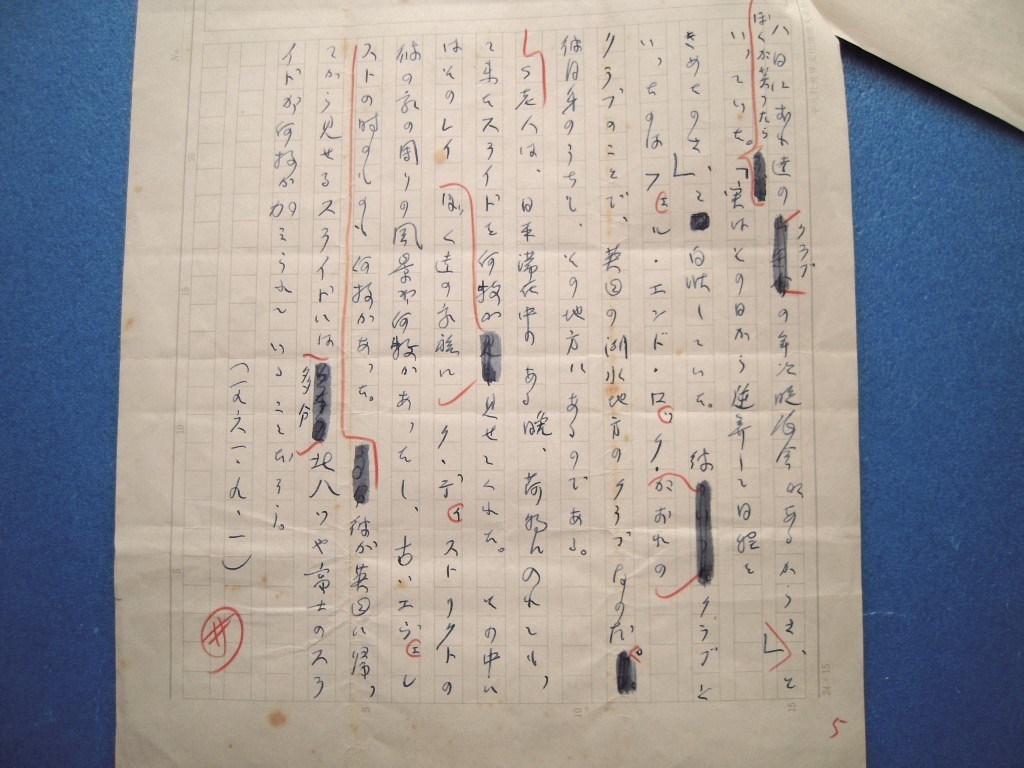 八日におれ達のクラブの年次晩餐会があるからさ、」と
ぼくが笑ったら
いっていた。「実はその日から逆算して日程を
きめたのさ、」と白状していた。彼がおれのクラブと
いったのはフェル・エンド・ロック・クラブの
ことで、英国の湖水地方のクラブなのだ。
彼自身のうちも、その地方にあるのである。
S老人は、日本滞在中のある晩、荷物の
て来たスライドを何枚か見せてくれた。その中に
はそのレイク・ディストリクトの
ぼく達の家族に
彼の家の周りの風景が何枚かあったし、古いエヴェレ
ストの時のものも何枚かあった。彼が英国に帰っ
てから見せるスライドには
多分
北八ツや富士のスラ
イドが何枚か加えられていることだろう。
(一九六一、九、一)
5
24×15